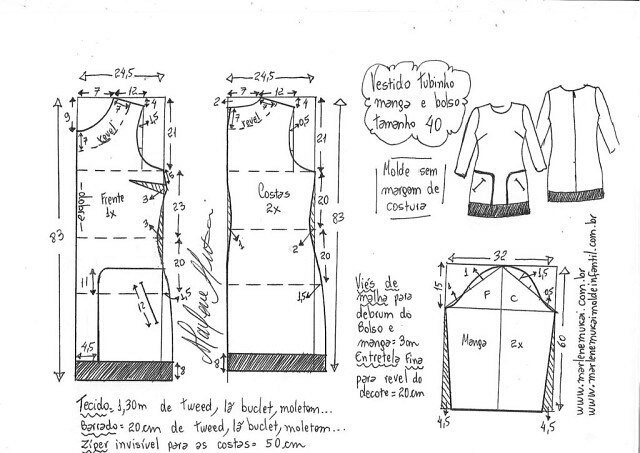 Vestido tubinho
manga e bolso
tamanho 40
Molde sem
margem de
costura
24,5
7
12
4
9
7
revel
1,5
21
1,5
3
Frente
1x
dobra
23
3
83
20
11
12
1,5
4,5
8
24,5
7
12
2
4
7
revel
0,5
21
Costas
2x
20
83
2
2
20
1,5
8
Marlene Mukai
32
15
1
1,5
1
0,5
F
C
Manga
2x
60
4,5
4,5
Viés de
malha para
debrum do
Bolso e
manga=3m
Entretela Fina
para revel do
decote=20cm
www.marlenemukai.com.br
www.marlenemukaimoldeinfantil.com.br
Tecido=1,30m de tweed, lã buclet, moletom...
Barrado=20cm de tweed, lã buclet, moletom...
Zíper invisível para as costas=50cm